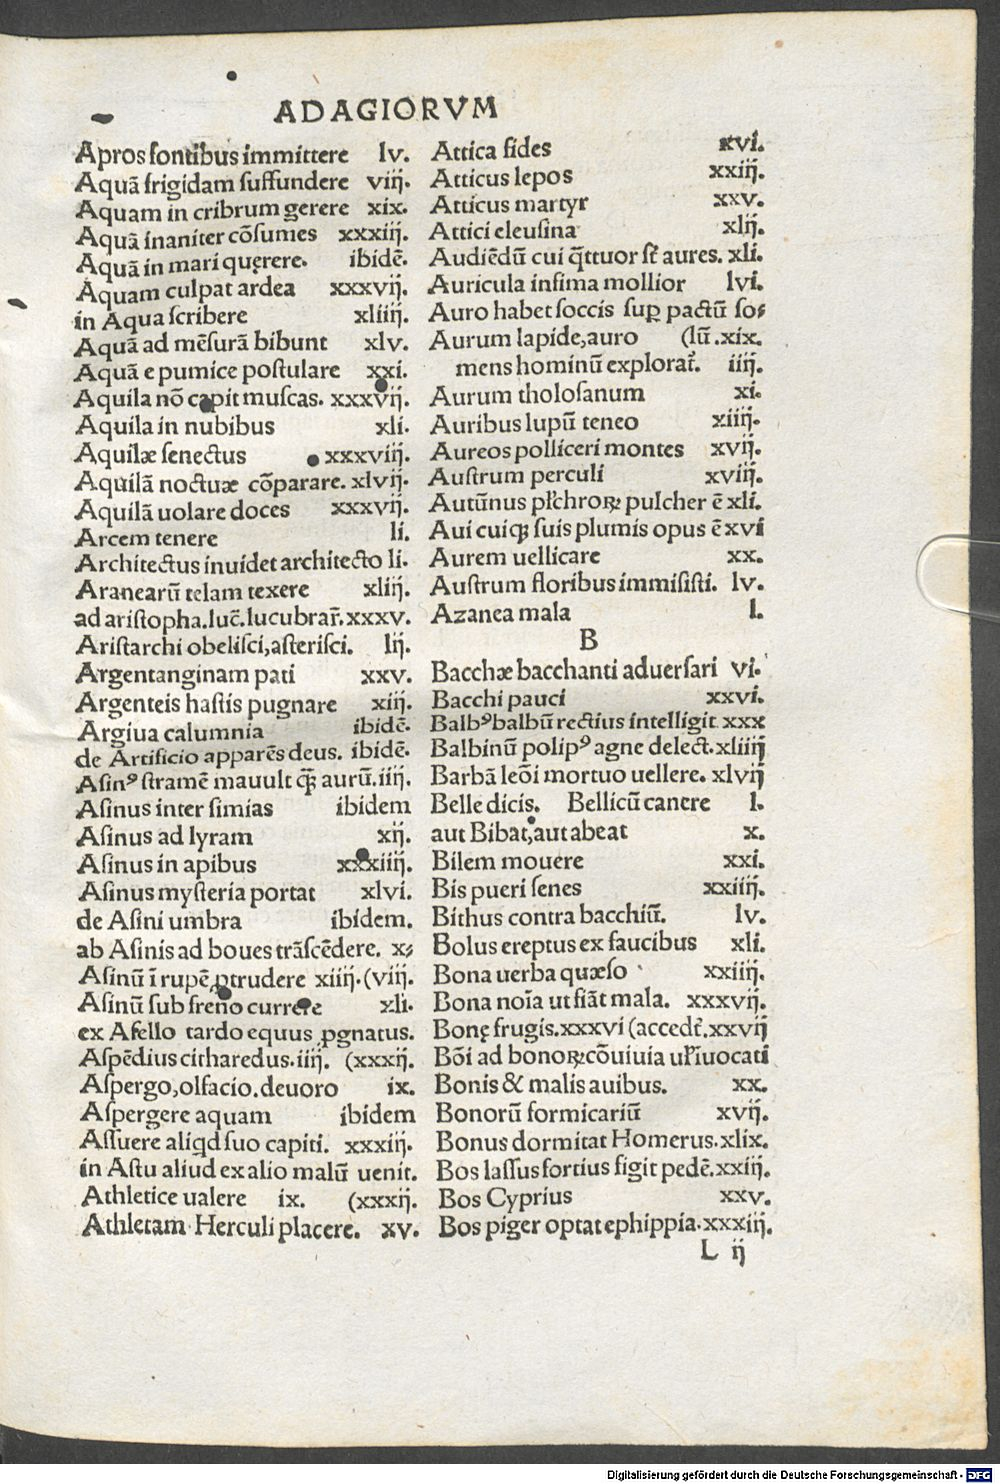 ADAGIORVM
Apros fontibus immittere lv.
Aquā frigidam suffundere viij.
Aquam in cribrum gerere xix.
Aquā inaniter cōsumes xxxiij.
Aquā in mari quęrere. ibidē.
Aquam culpat ardea xxxvij.
in Aqua scribere xliiij.
Aquā ad mēsurā bibunt xlv.
Aquā e pumice postulare xxi.
Aquila nō capit muscas. xxxvij.
Aquila in nubibus xli.
Aquilæ senectus xxxviij.
Aquilā noctuæ cōparare. xlvij.
Aquilā uolare doces xxxvij.
Arcem tenere li.
Architectus inuidet architecto li.
Aranearū telam texere xliij.
ad aristopha. luc̄. lucubrar̄. xxxv.
Aristarchi obelisci, asterisci. lij.
Argentanginam pati xxv.
Argenteis hastis pugnare xiij.
Argiua calumnia ibidē.
de Artificio apparēs deus. ibidē.
Asinꝰ stramē mauult q̄ꝫ aurū. iiij.
Asinus inter simias ibidem
Asinus ad lyram xij.
Asinus in apibus xxxiiij.
Asinus mysteria portat xlvi.
de Asini umbra ibidem.
ab Asinis ad boues trāscēdere. x⸗
Asinū ī rupē ꝓtrudere xiiij. (viij.
Asinū sub freno currere xli.
ex Asello tardo equus ꝓgnatus.
Aspēdius citharedus. iiij. (xxxij.
Aspergo, olfacio. deuoro ix.
Aspergere aquam ibidem
Assuere aliqd suo capiti. xxxiij.
in Astu aliud ex alio malū uenit.
Athletice ualere ix. (xxxij.
Athletam Herculi placere. xv.
Attica fides xvi.
Atticus lepos xxiij.
Atticus martyr xxv.
Attici eleusina xlij.
Audiēdū cui q̄ttuor sr̄ aures. xli.
Auricula infima mollior lvi.
Auro habet soccis suꝑ pactū so⸗
Aurum lapide, auro (lū. xix.
mens hominū explorat̄. iiij.
Aurum tholosanum xi.
Auribus lupū teneo xiiij.
Aureos polliceri montes xvij.
Austrum perculi xviij.
Autūnus pl̄chroꝝ pulcher ē xli.
Aui cuiqꝫ suis plumis opus ē xvi
Aurem uellicare xx.
Austrum floribus immisisti. lv.
Azanea mala l.
B
Bacchæ bacchanti aduersari vi.
Bacchi pauci xxvi.
Balbꝰ balbū rectius intelligit xxx
Balbinū polipꝰ agne delect. xliiij
Barbā leōi mortuo uellere. xlvij
Belle dicis. Bellicū canere l.
aut Bibat, aut abeat x.
Bilem mouere xxi.
Bis pueri senes xxiiij.
Bithus contra bacchiū. lv.
Bolus ereptus ex faucibus xli.
Bona uerba quæso xxiiij.
Bona noīa ut fiāt mala. xxxvij.
Bonę frugis. xxxvi (accedt̄. xxvij
Bōi ad bonoꝝ cōuiuia ul̄ iuocati
Bonis & malis auibus. xx.
Bonorū formicariū xvij.
Bonus dormitat Homerus. xlix.
Bos lassus fortius figit pedē. xxiij.
Bos Cyprius xxv.
Bos piger optat ephippia. xxxiij.
L ij
Digitalisierung gefördert durch die Deutsche Forschungsgemeinschaft - DFG